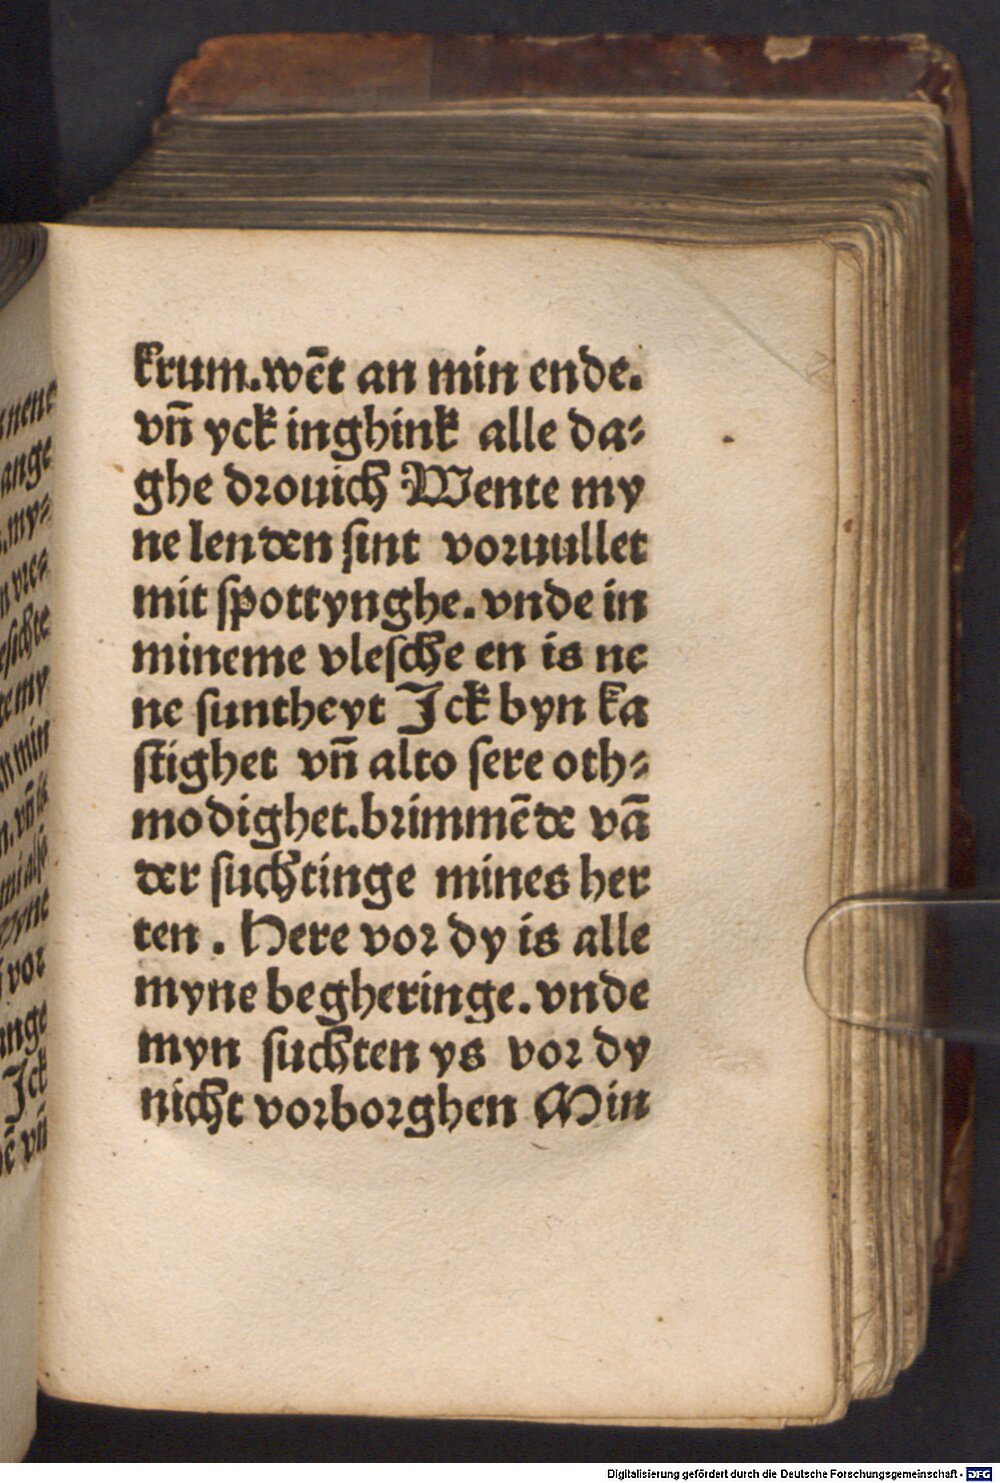 krum.wēt an min ende.
vn̄ yck inghink alle da⸗
ghe drouich Wente my
ne lenden sint voruullet
mit spottynghe. vnde in
mineme vlesche en is ne
ne suntheyt Jck byn ka
stighet vn̄ alto sere oth⸗
modighet.brimmēde vā
der suchtinge mines her
ten . Here vor dy is alle
myne begheringe. vnde
myn suchten ys vor dy
nicht vorborghen Min
Digitalisierung gefördert durch die Deutsche Forschungsgemeinschaft - DFG